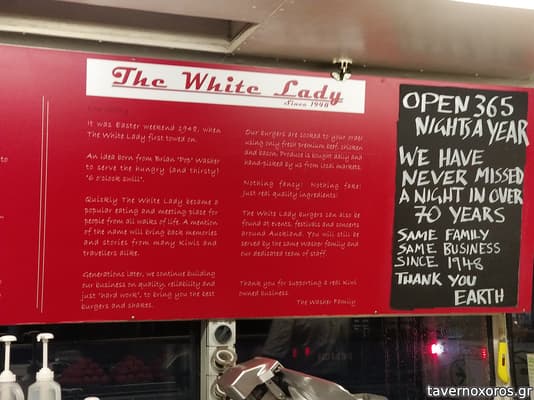 The White Lady
Since 1948
It was Easter weekend 1948, when
The White Lady first towed on.
An idea born from Brian "Pop" Washer
to serve the hungry (and thirsty)
"6 o'clock swill".
Quickly The White Lady became a
popular eating and meeting place for
people from all walks of life. A mention
of the name will bring back memories
and stories from many Kiwis and
travellers alike.
Generations later, we continue building
our business on quality, reliability and
just "hard work", to bring you the best
burgers and shakes.
Our burgers are cooked to your order
using only fresh premium beef, chicken
and bacon. Produce is bought daily and
hand-picked by us from local markets.
Nothing fancy; Nothing fake;
just real quality ingredients;
The White Lady burgers can also be
found at events, festivals and concerts
around Auckland. You will still be
served by the same Washer family and
our dedicated team of staff.
Thank you for supporting a real Kiwi
owned business
The Washer Family
OPEN 365
NIGHTS A YEAR
WE HAVE
NEVER MISSED
A NIGHT IN OVER
70 YEARS
SAME FAMILY
SAME BUSINESS
SINCE 1948
THANK YOU
EARTH
tavernoxoros.gr